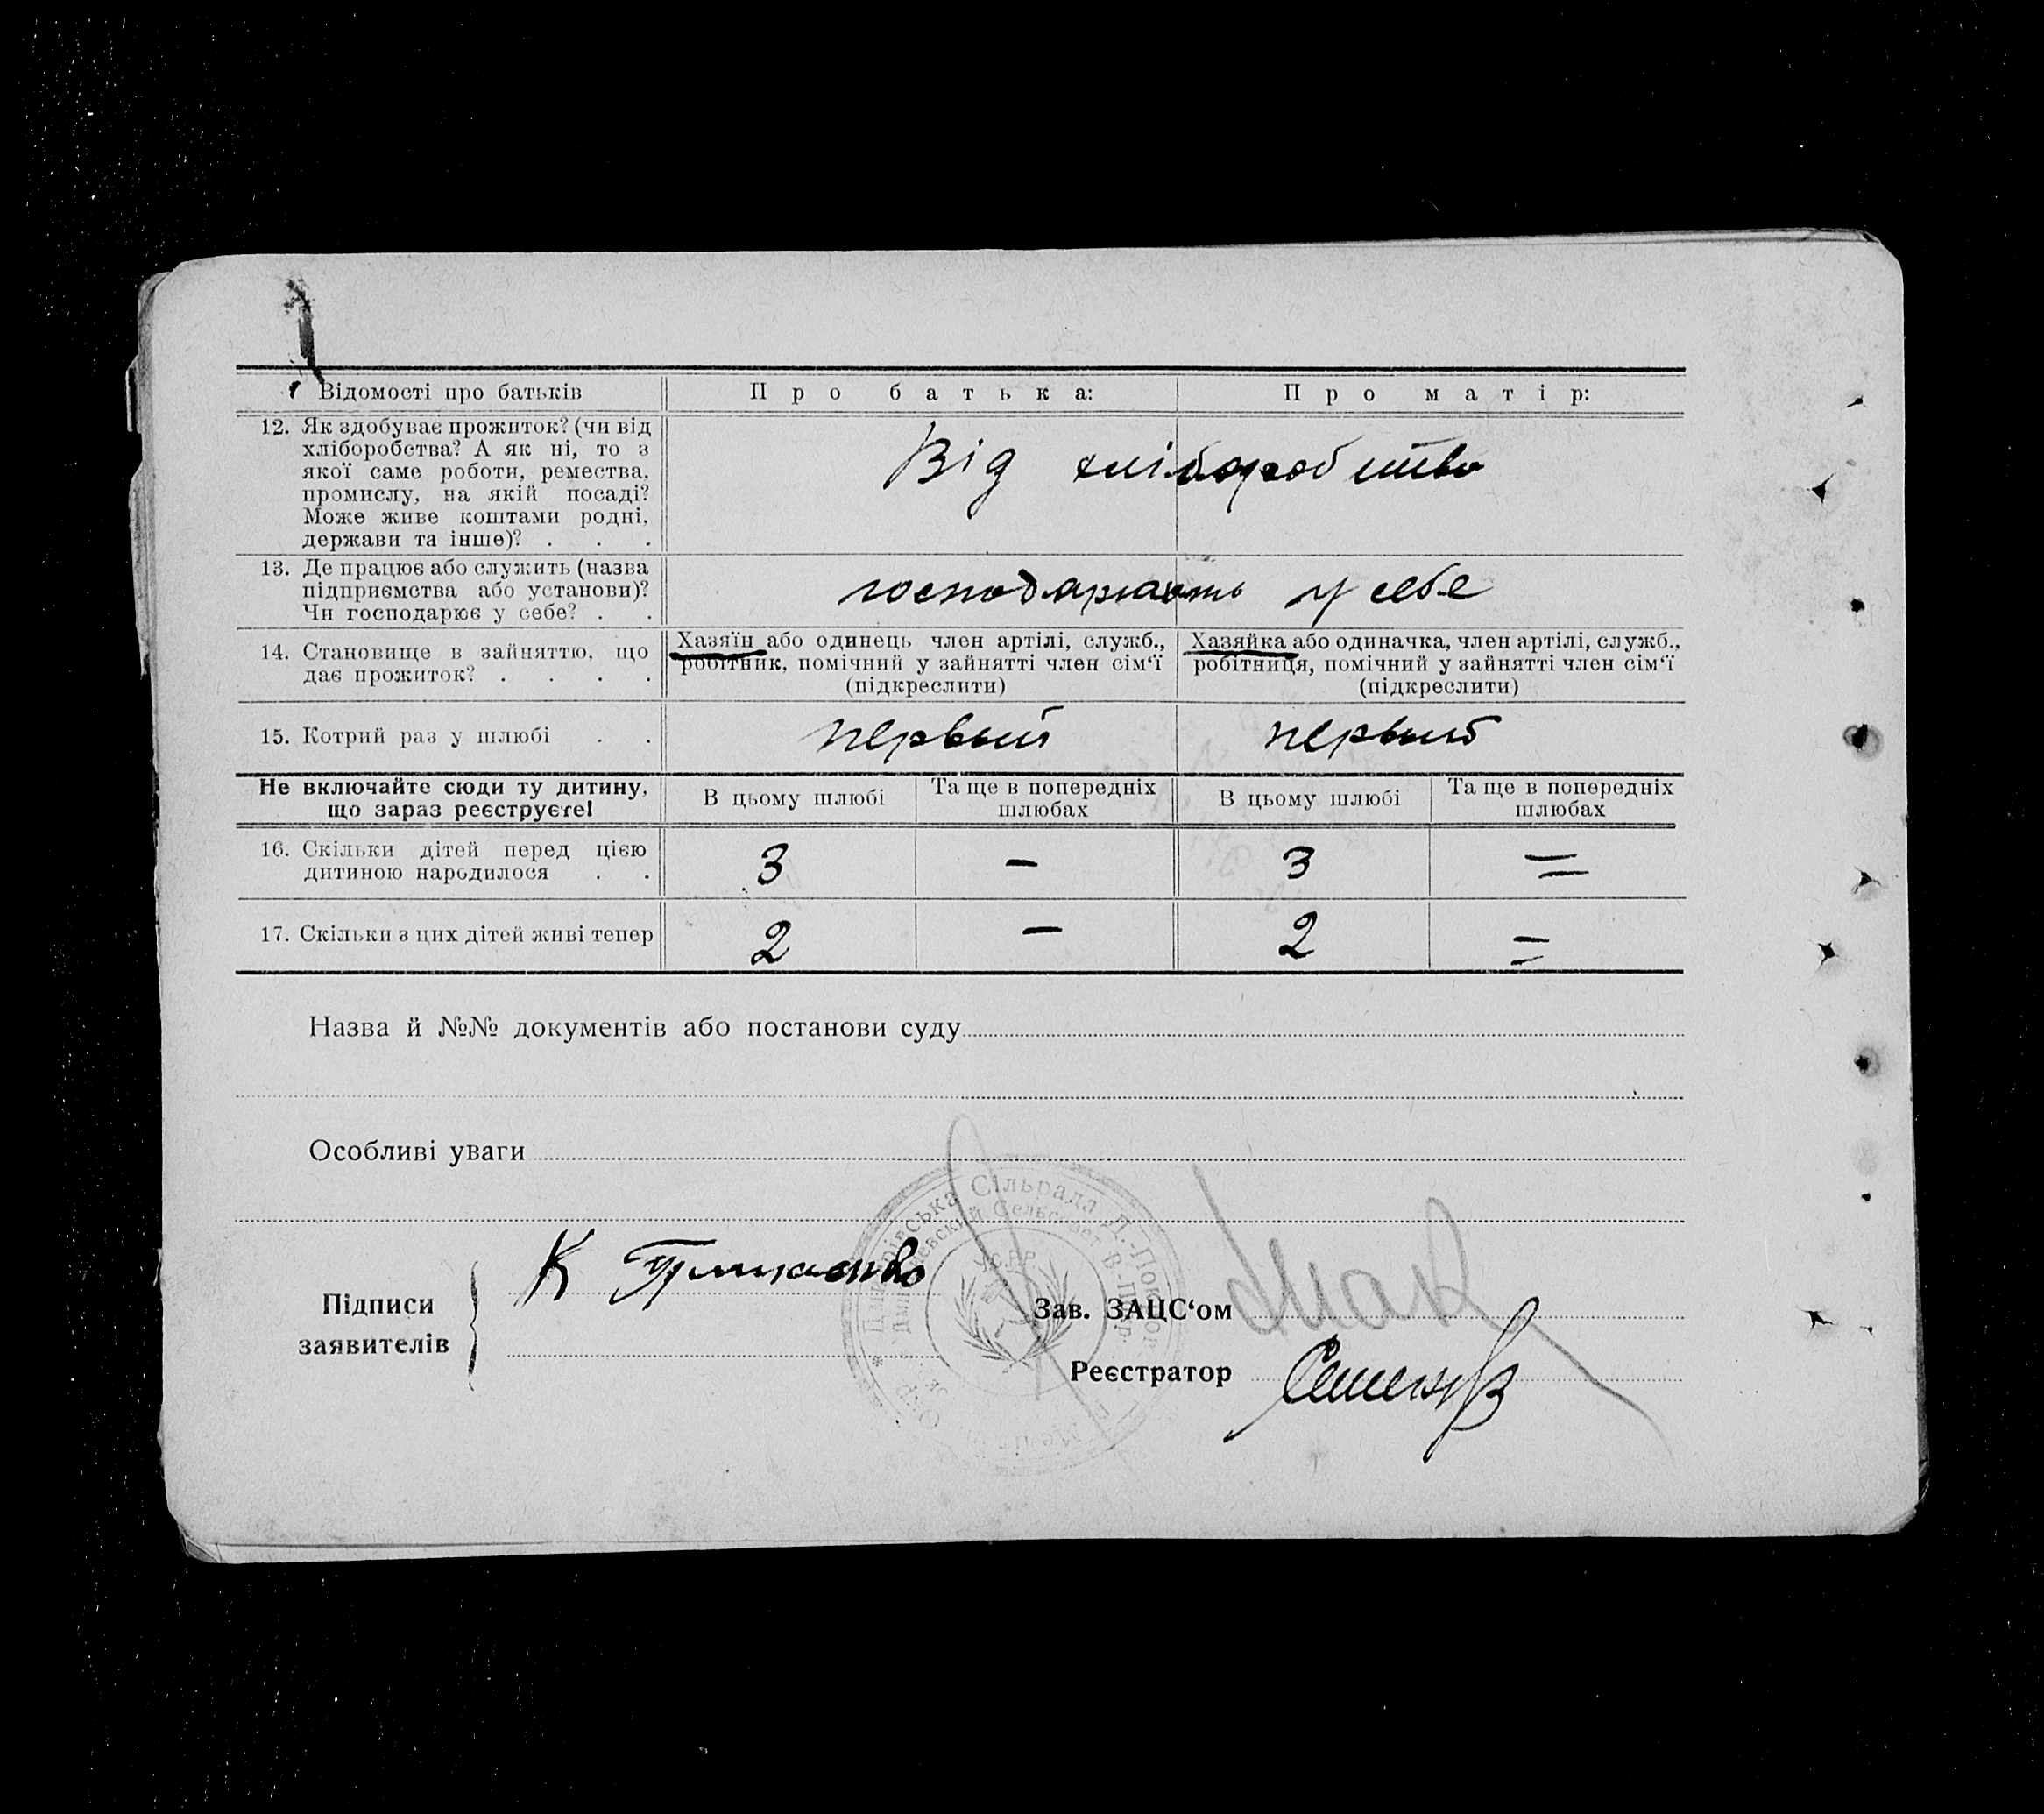 Відомості про батьків
Про батька:
Про матір:
12. Як здобуває прожиток? (чи від
хліборобства? А як ні, то з
якої саме роботи, ремества,
промислу, на якій посаді?
Може живе коштами родні,
держави та інше)? . . .
Від хліборобства
13. Де працює або служить (назва
підприємства або установи)?
Чи господарює у себе? . .
господарюють у себе
14. Становище в зайняттю, що
дає прожиток? . . . .
Хазяїн або одинець член артілі, служб.,
робітник, помічний у зайнятті член сім'ї
(підкреслити)
Хазяйка або одиначка, член артілі, служб.,
робітниця, помічний у зайнятті член сім'ї
(підкреслити)
15. Котрий раз у шлюбі . .
первый
первый
Не включайте сюди ту дитину,
що зараз реєструєте!
В цьому шлюбі
Та ще в попередніх
шлюбах
В цьому шлюбі
Та ще в попередніх
шлюбах
16. Скільки дітей перед цією
дитиною народилося . .
3
–
3
=
17. Скільки з цих дітей живі тепер
2
–
2
=
Назва й №№ документів або постанови суду
Особливі уваги
Підписи
заявителів
К
Зав. ЗАЦС'ом
Реєстратор
Сільрада
УСРР